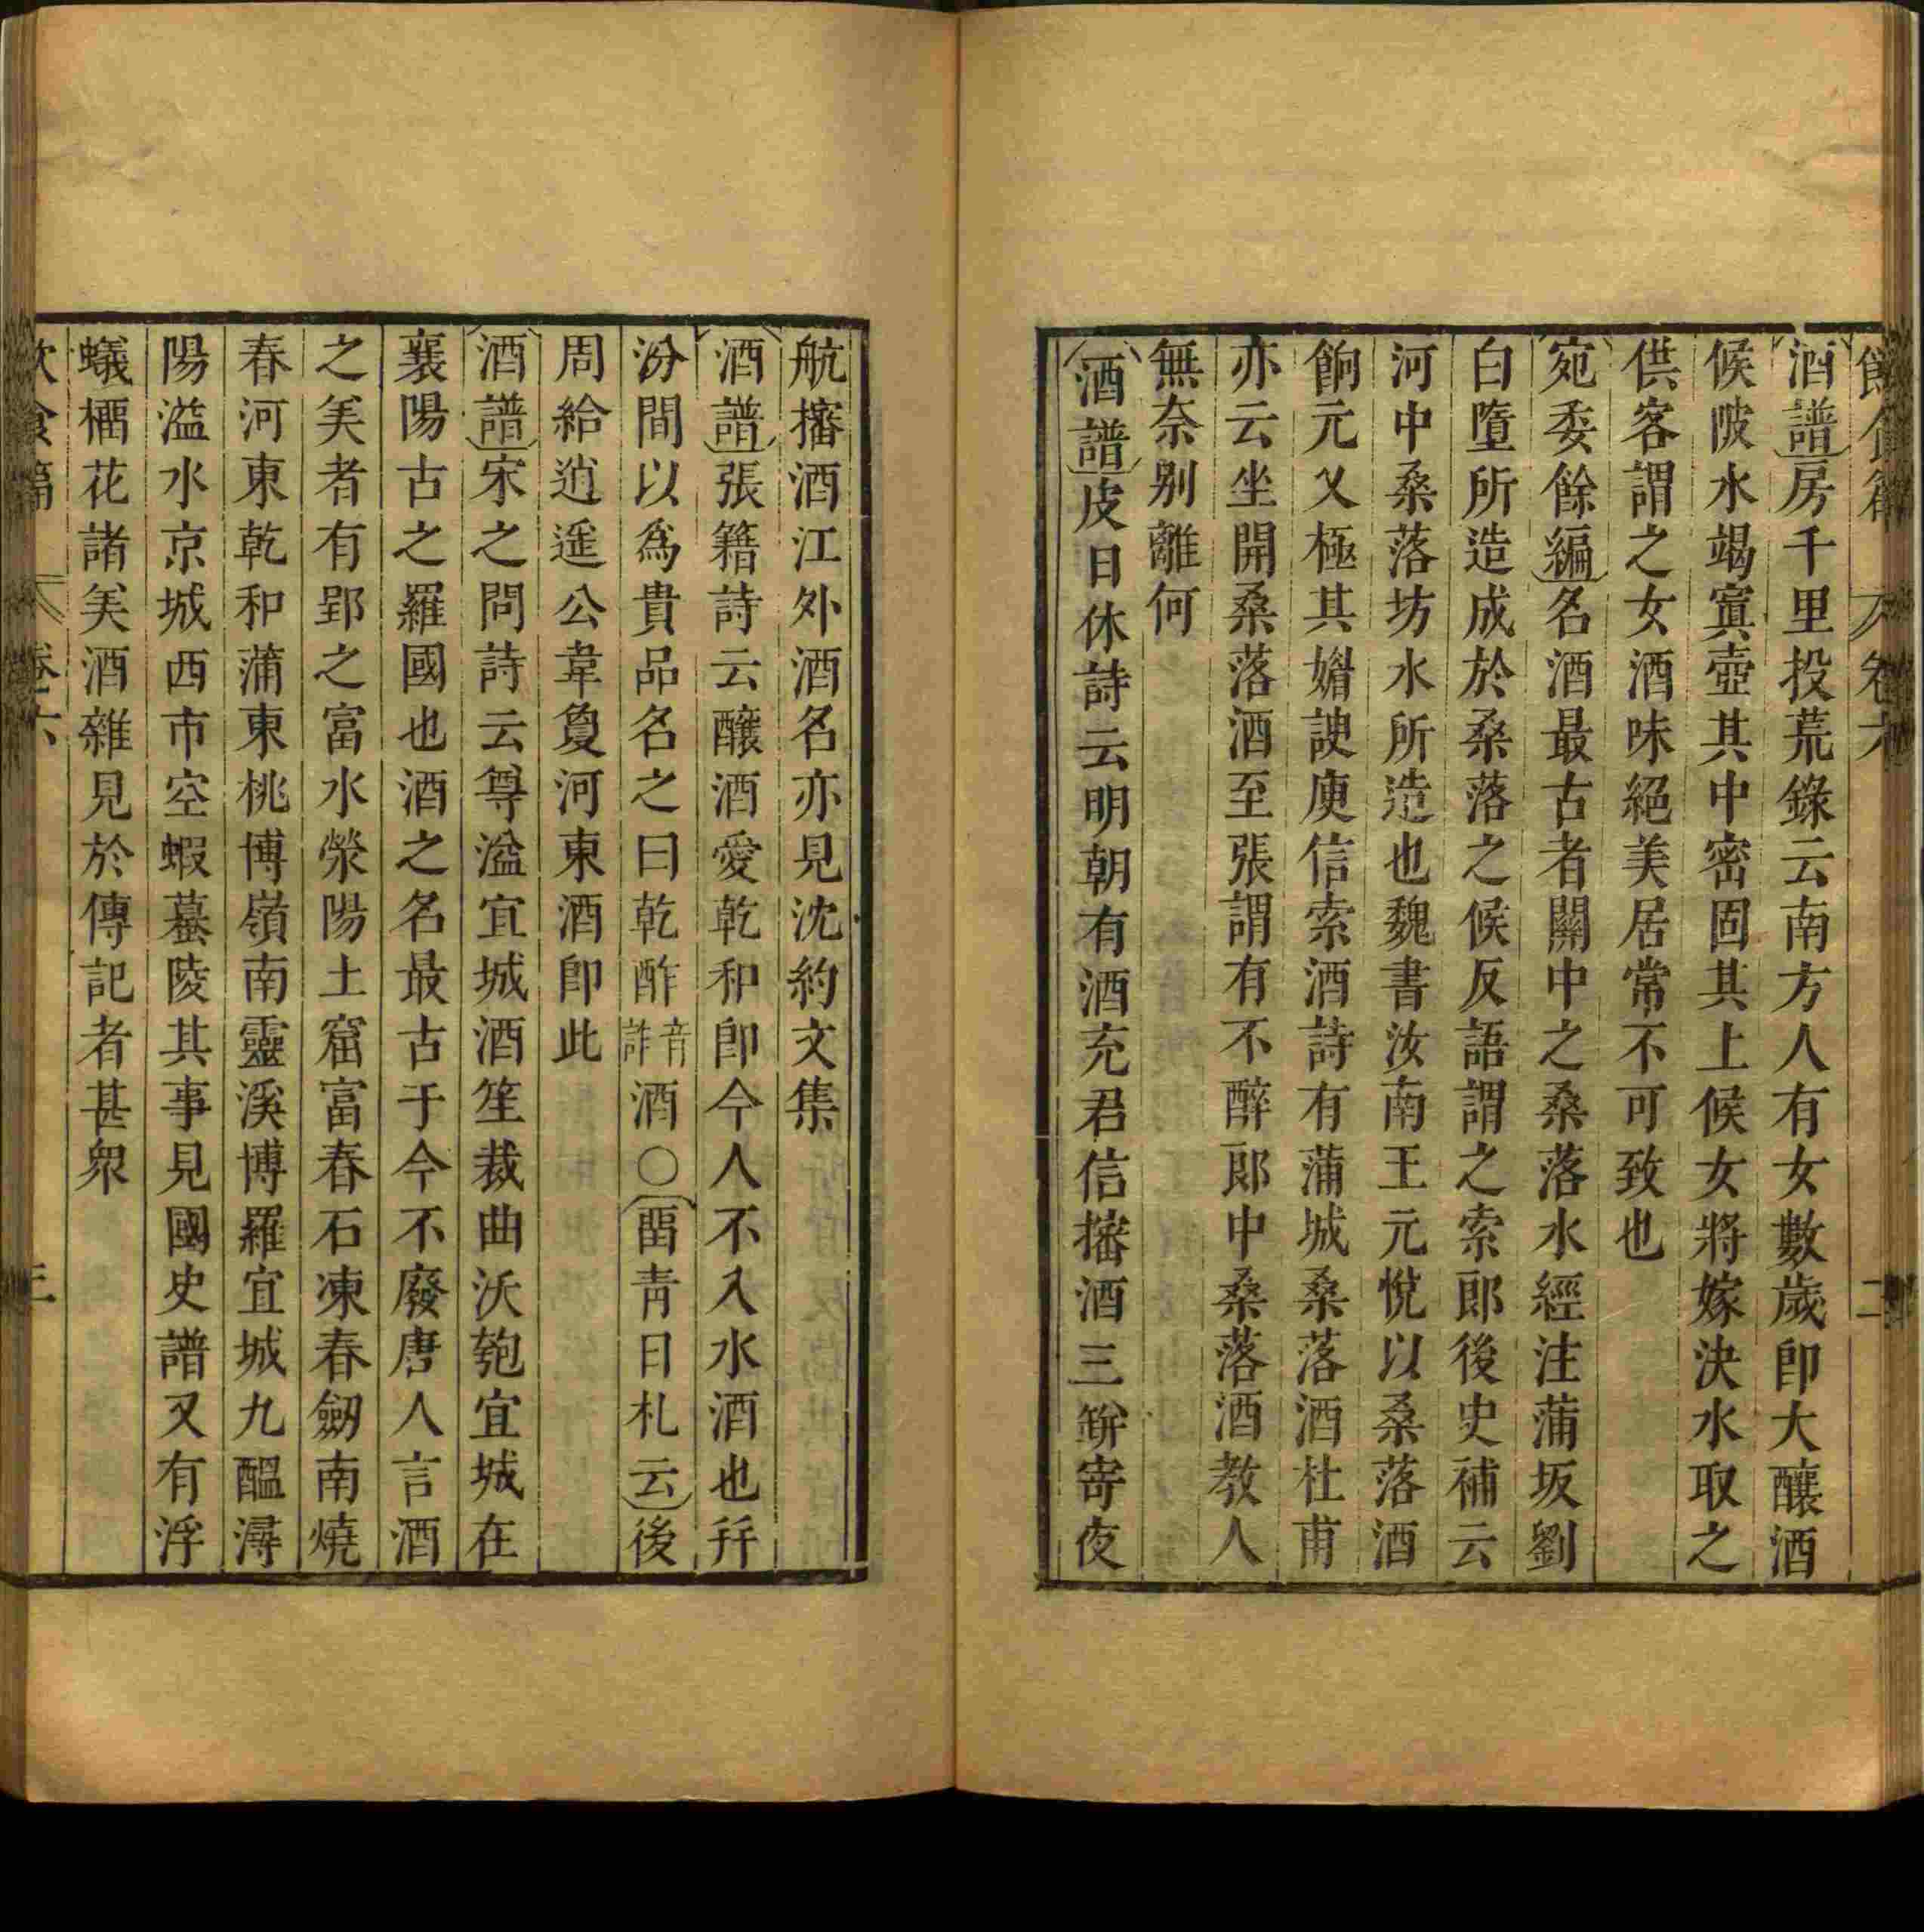 飲食篇 卷六 二
酒譜房千里投荒錄云南方人有女數歲即大釀酒
候陂水竭寘壺其中密固其上候女將嫁決水取之
供客謂之女酒味絕美居常不可致也
宛委餘編名酒最古者關中之桑落水經注蒲坂劉
白墮所造成於桑落之候反語謂之索郎後史補云
河中桑落坊水所造也魏書汝南王元悅以桑落酒
餉元乂極其媚諛庾信索酒詩有蒲城桑落酒杜甫
亦云坐開桑落酒至張謂有不醉郎中桑落酒教人
無奈别離何
酒譜皮日休詩云明朝有酒充君信㩧酒三缾寄夜
航㩧酒江外酒名亦見沈約文集
酒譜張籍詩云釀酒愛乾和即今人不入水酒也幷
汾間以爲貴品名之曰乾酢音詐酒○留青日札云後
周給逍遥公韋夐河東酒即此
酒譜宋之問詩云尊溢宜城酒笙裁曲沃匏宜城在
襄陽古之羅國也酒之名最古于今不廢唐人言酒
之美者有郢之富水滎陽土窟富春石凍春劒南燒
春河東乾和蒲東桃博嶺南靈溪博羅宜城九醞潯
陽湓水京城西市空蝦蟇陵其事見國史譜又有浮
蟻榴花諸美酒雜見於傳記者甚衆
飲食篇 卷六 三